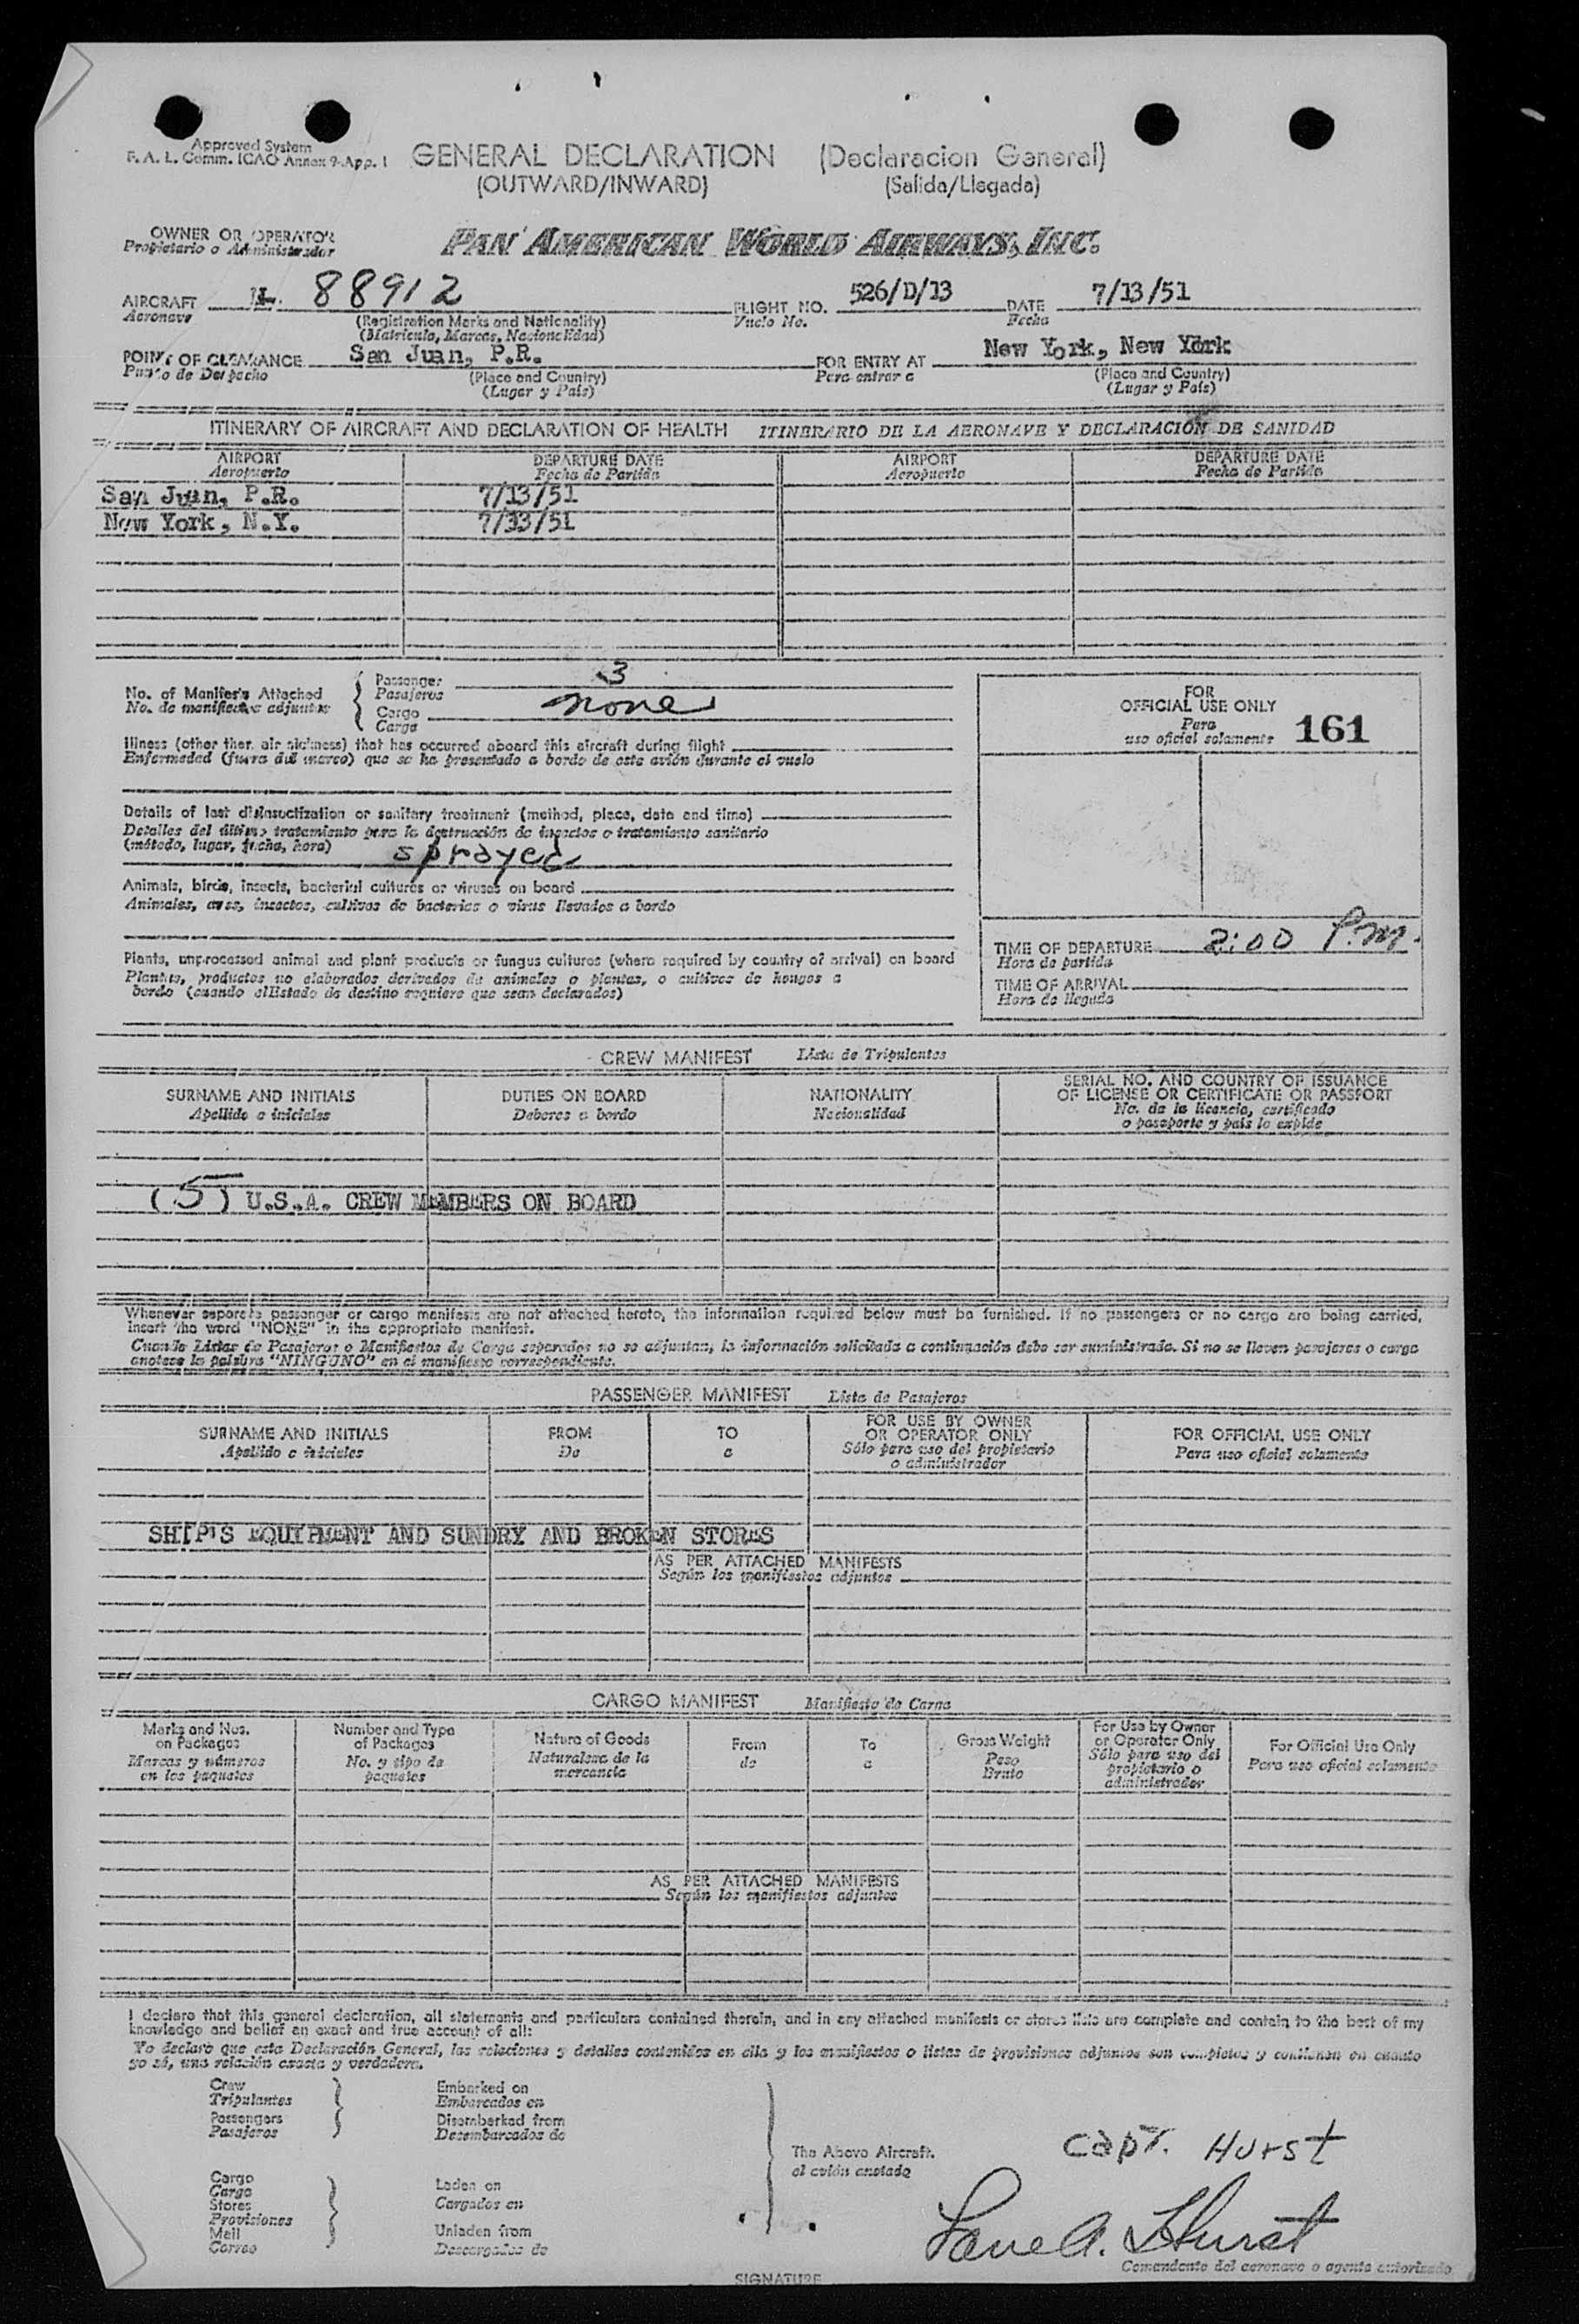 Approved System
F. A. L. Comm. ICAO Annex 9-App. 1
GENERAL DECLARATION (Declaracion General)
(OUTWARD/INWARD) (Salida/Llegada)
OWNER OR OPERATOR
Propietario o Administrador
PAN AMERICAN WORLD AIRWAYS, INC.
AIRCRAFT 88912 FLIGHT NO. 526/D/13 DATE 7/13/51
Aeronave (Registration Marks and Nationality) Vuelo No. Fecha
(Matricula, Marcas, Nacionalidad)
POINT OF CLEARANCE San Juan, P.R. FOR ENTRY AT New York, New York
Punto de Despacho (Place and Country) Para entrar a (Place and Country)
(Lugar y País) (Lugar y País)
ITINERARY OF AIRCRAFT AND DECLARATION OF HEALTH ITINERARIO DE LA AERONAVE Y DECLARACIÓN DE SANIDAD
AIRPORT DEPARTURE DATE AIRPORT DEPARTURE DATE
Aeropuerto Fecha de Partida Aeropuerto Fecha de Partida
San Juan, P.R. 7/13/51
New York, N.Y. 7/13/51
No. of Manifests Attached Passenger 3
No. de manifiestos adjuntos Pasajeros
Cargo none
Carga
FOR
OFFICIAL USE ONLY
Para
uso oficial solamente 161
Illness (other than air sickness) that has occurred aboard this aircraft during flight
Enfermedad (fuera del mareo) que se ha presentado a bordo de este avión durante el vuelo
Details of last disinsectization or sanitary treatment (method, place, date and time)
Detalles del último tratamiento para la destrucción de insectos o tratamiento sanitario
(método, lugar, fecha, hora) sprayed
Animals, birds, insects, bacterial cultures or viruses on board
Animales, aves, insectos, cultivos de bacterias o virus llevados a bordo
Plants, unprocessed animal and plant products or fungus cultures (where required by country of arrival) on board
Plantas, productos no elaborados derivados de animales o plantas, o cultivos de hongos a
bordo (cuando el Estado de destino requiere que sean declarados)
TIME OF DEPARTURE 2:00 P.m.
Hora de partida
TIME OF ARRIVAL
Hora de llegada
CREW MANIFEST Lista de Tripulantes
SURNAME AND INITIALS DUTIES ON BOARD NATIONALITY SERIAL NO. AND COUNTRY OF ISSUANCE
OF LICENSE OR CERTIFICATE OR PASSPORT
Apellido e iniciales Deberes a bordo Nacionalidad No. de la licencia, certificado
o pasaporte y país lo expide
(5) U.S.A. CREW MEMBERS ON BOARD
Whenever separate passenger or cargo manifests are not attached hereto, the information required below must be furnished. If no passengers or no cargo are being carried,
insert the word "NONE" in the appropriate manifest.
Cuando Listas de Pasajeros o Manifiestos de Carga separados no se adjuntan, la información solicitada a continuación debe ser suministrada. Si no se llevan pasajeros o carga
anotese la palabra "NINGUNO" en el manifiesto correspondiente.
PASSENGER MANIFEST Lista de Pasajeros
SURNAME AND INITIALS FROM TO FOR USE BY OWNER
OR OPERATOR ONLY FOR OFFICIAL USE ONLY
Apellido e iniciales De a Sólo para uso del propietario
o administrador Para uso oficial solamente
SHIP'S EQUIPMENT AND SUNDRY AND BROKEN STORES
AS PER ATTACHED MANIFESTS
Según los manifiestos adjuntos
CARGO MANIFEST Manifiesto de Carga
Marks and Nos.
on Packages
Marcas y números
en los paquetes
Number and Type
of Packages
No. y tipo de
paquetes
Nature of Goods
Naturaleza de la
mercancia
From
de
To
a
Gross Weight
Peso
Bruto
For Use by Owner
or Operator Only
Sólo para uso del
propietario o
administrador
For Official Use Only
Para uso oficial solamente
AS PER ATTACHED MANIFESTS
Según los manifiestos adjuntos
I declare that this general declaration, all statements and particulars contained therein, and in any attached manifests or stores lists are complete and contain to the best of my
knowledge and belief an exact and true account of all:
Yo declaro que esta Declaración General, las relaciones y detalles contenidos en ella y los manifiestos o listas de provisiones adjuntos son completos y contienen en cuanto
yo sé, una relación exacta y verdadera.
Crew
Tripulantes
Passengers
Pasajeros
Embarked on
Embarcados en
Disembarked from
Desembarcados de
Cargo
Carga
Stores
Provisiones
Mail
Correo
Laden on
Cargados en
Unladen from
Descargados de
The Above Aircraft.
el avión anotado
Capt. Hurst
Lane A. Hurst
Comandante del aeronave o agente autorizado
SIGNATURE